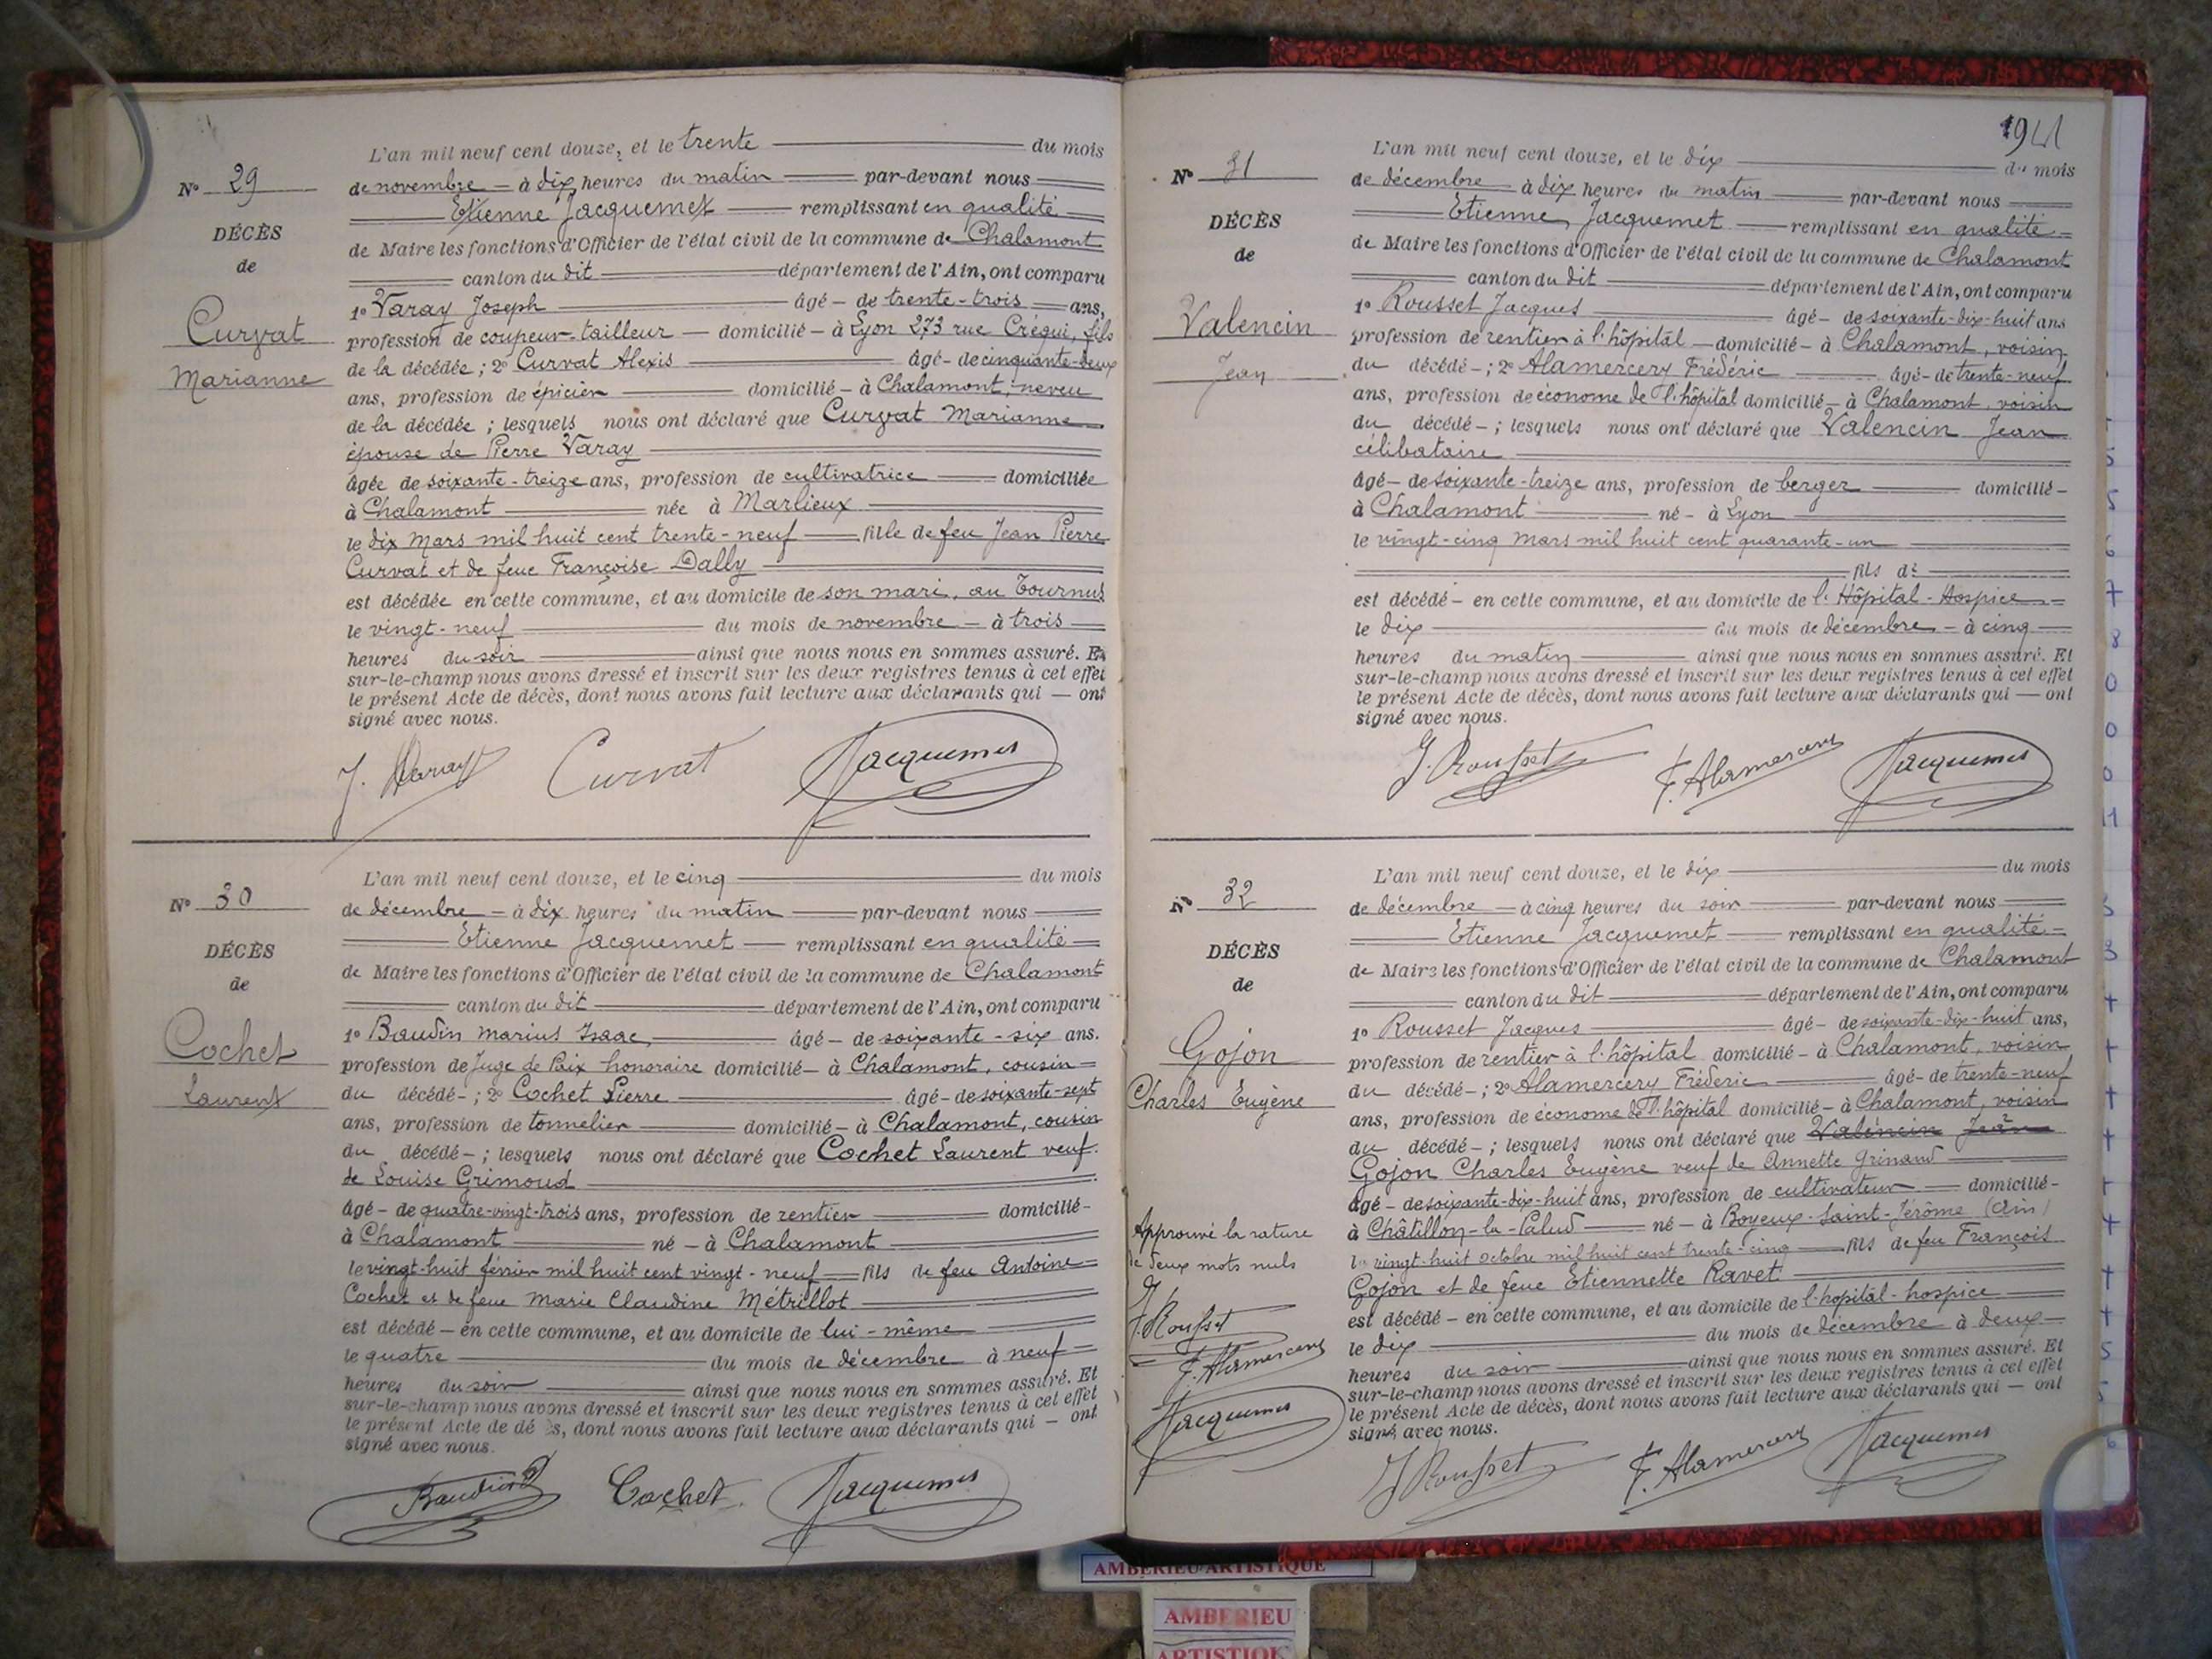 N° 29
DÉCÈS
de
Curvat
Marianne
L'an mil neuf cent douze, et le trente du mois
de novembre à dix heures du matin par-devant nous
Etienne Jacquemet remplissant en qualité
de Maire les fonctions d'Officier de l'état civil de la commune de Chalamont
canton du dit département de l'Ain, ont comparu
1° Varay Joseph âgé de trente-trois ans,
profession de coupeur-tailleur domicilié à Lyon 273 rue Créqui, fils
de la décédée ; 2° Curvat Alexis âgé de cinquante-deux
ans, profession de épicier domicilié à Chalamont, neveu
de la décédée ; lesquels nous ont déclaré que Curvat Marianne
épouse de Pierre Varay
âgée de soixante-treize ans, profession de cultivatrice domiciliée
à Chalamont née à Marlieux
le dix Mars mil huit cent trente-neuf fille de feu Jean Pierre
Curvat et de feue Françoise Dally
est décédée en cette commune, et au domicile de son mari, au Tournus
le vingt-neuf du mois de novembre à trois
heures du soir ainsi que nous nous en sommes assuré. Et
sur-le-champ nous avons dressé et inscrit sur les deux registres tenus à cet effet
le présent Acte de décès, dont nous avons fait lecture aux déclarants qui — ont
signé avec nous.
J. Varay Curvat Jacquemet
N° 30
DÉCÈS
de
Cochet
Laurent
L'an mil neuf cent douze, et le cinq du mois
de décembre à dix heures du matin par-devant nous
Etienne Jacquemet remplissant en qualité
de Maire les fonctions d'Officier de l'état civil de la commune de Chalamont
canton du dit département de l'Ain, ont comparu
1° Baudin Marius Isaac, âgé de soixante-six ans.
profession de Juge de Paix honoraire domicilié à Chalamont, cousin
du décédé ; 2° Cochet Pierre âgé de soixante-sept
ans, profession de tonnelier domicilié à Chalamont, cousin
du décédé ; lesquels nous ont déclaré que Cochet Laurent veuf
de Louise Grimoud
âgé de quatre-vingt-trois ans, profession de rentier domicilié
à Chalamont né à Chalamont
le vingt-huit février mil huit cent vingt-neuf fils de feu Antoine
Cochet et de feue Marie Claudine Métrillot
est décédé en cette commune, et au domicile de lui-même
le quatre du mois de décembre à neuf
heures du soir ainsi que nous nous en sommes assuré. Et
sur-le-champ nous avons dressé et inscrit sur les deux registres tenus à cet effet
le présent Acte de décès, dont nous avons fait lecture aux déclarants qui — ont
signé avec nous.
Baudin Cochet Jacquemet
N° 31
DÉCÈS
de
Valencin
Jean
L'an mil neuf cent douze, et le dix du mois
de décembre à dix heures du matin par-devant nous
Etienne Jacquemet remplissant en qualité
de Maire les fonctions d'Officier de l'état civil de la commune de Chalamont
canton du dit département de l'Ain, ont comparu
1° Rousset Jacques âgé de soixante-dix-huit ans
profession de rentier à l'hôpital domicilié à Chalamont, voisin
du décédé ; 2° Alamercery Frédéric âgé de trente-neuf
ans, profession de économe de l'hôpital domicilié à Chalamont, voisin
du décédé ; lesquels nous ont déclaré que Valencin Jean
célibataire
âgé de soixante-treize ans, profession de berger domicilié
à Chalamont né à Lyon
le vingt-cinq Mars mil huit cent quarante-un
fils de
est décédé en cette commune, et au domicile de l'Hôpital-Hospice
le dix du mois de décembre à cinq
heures du matin ainsi que nous nous en sommes assuré. Et
sur-le-champ nous avons dressé et inscrit sur les deux registres tenus à cet effet
le présent Acte de décès, dont nous avons fait lecture aux déclarants qui — ont
signé avec nous.
J. Rousset F. Alamercery Jacquemet
N° 32
DÉCÈS
de
Gojon
Charles Eugène
L'an mil neuf cent douze, et le dix du mois
de décembre à cinq heures du soir par-devant nous
Etienne Jacquemet remplissant en qualité
de Maire les fonctions d'Officier de l'état civil de la commune de Chalamont
canton du dit département de l'Ain, ont comparu
1° Rousset Jacques âgé de soixante-dix-huit ans,
profession de rentier à l'hôpital domicilié à Chalamont, voisin
du décédé ; 2° Alamercery Fréderic âgé de trente-neuf
ans, profession de économe de l'hôpital domicilié à Chalamont, voisin
du décédé ; lesquels nous ont déclaré que Valencin Jean
Gojon Charles Eugène veuf de Annette Grinand
âgé de soixante-dix-huit ans, profession de cultivateur domicilié
à Châtillon-la-Palud né à Boyeux-Saint-Jérôme (Ain)
le vingt-huit octobre mil huit cent trente-cinq fils de feu François
Gojon et de feue Etiennette Ravet
est décédé en cette commune, et au domicile de l'hopital-hospice
le dix du mois de décembre à deux
heures du soir ainsi que nous nous en sommes assuré. Et
sur-le-champ nous avons dressé et inscrit sur les deux registres tenus à cet effet
le présent Acte de décès, dont nous avons fait lecture aux déclarants qui — ont
signé avec nous.
J Rousset F. Alamercery Jacquemet
Approuvé la rature
de deux mots nuls
J. Rousset
F. Alamercery
Jacquemet
AMBERIEU ARTISTIQUE
AMBERIEU
ARTISTIQUE